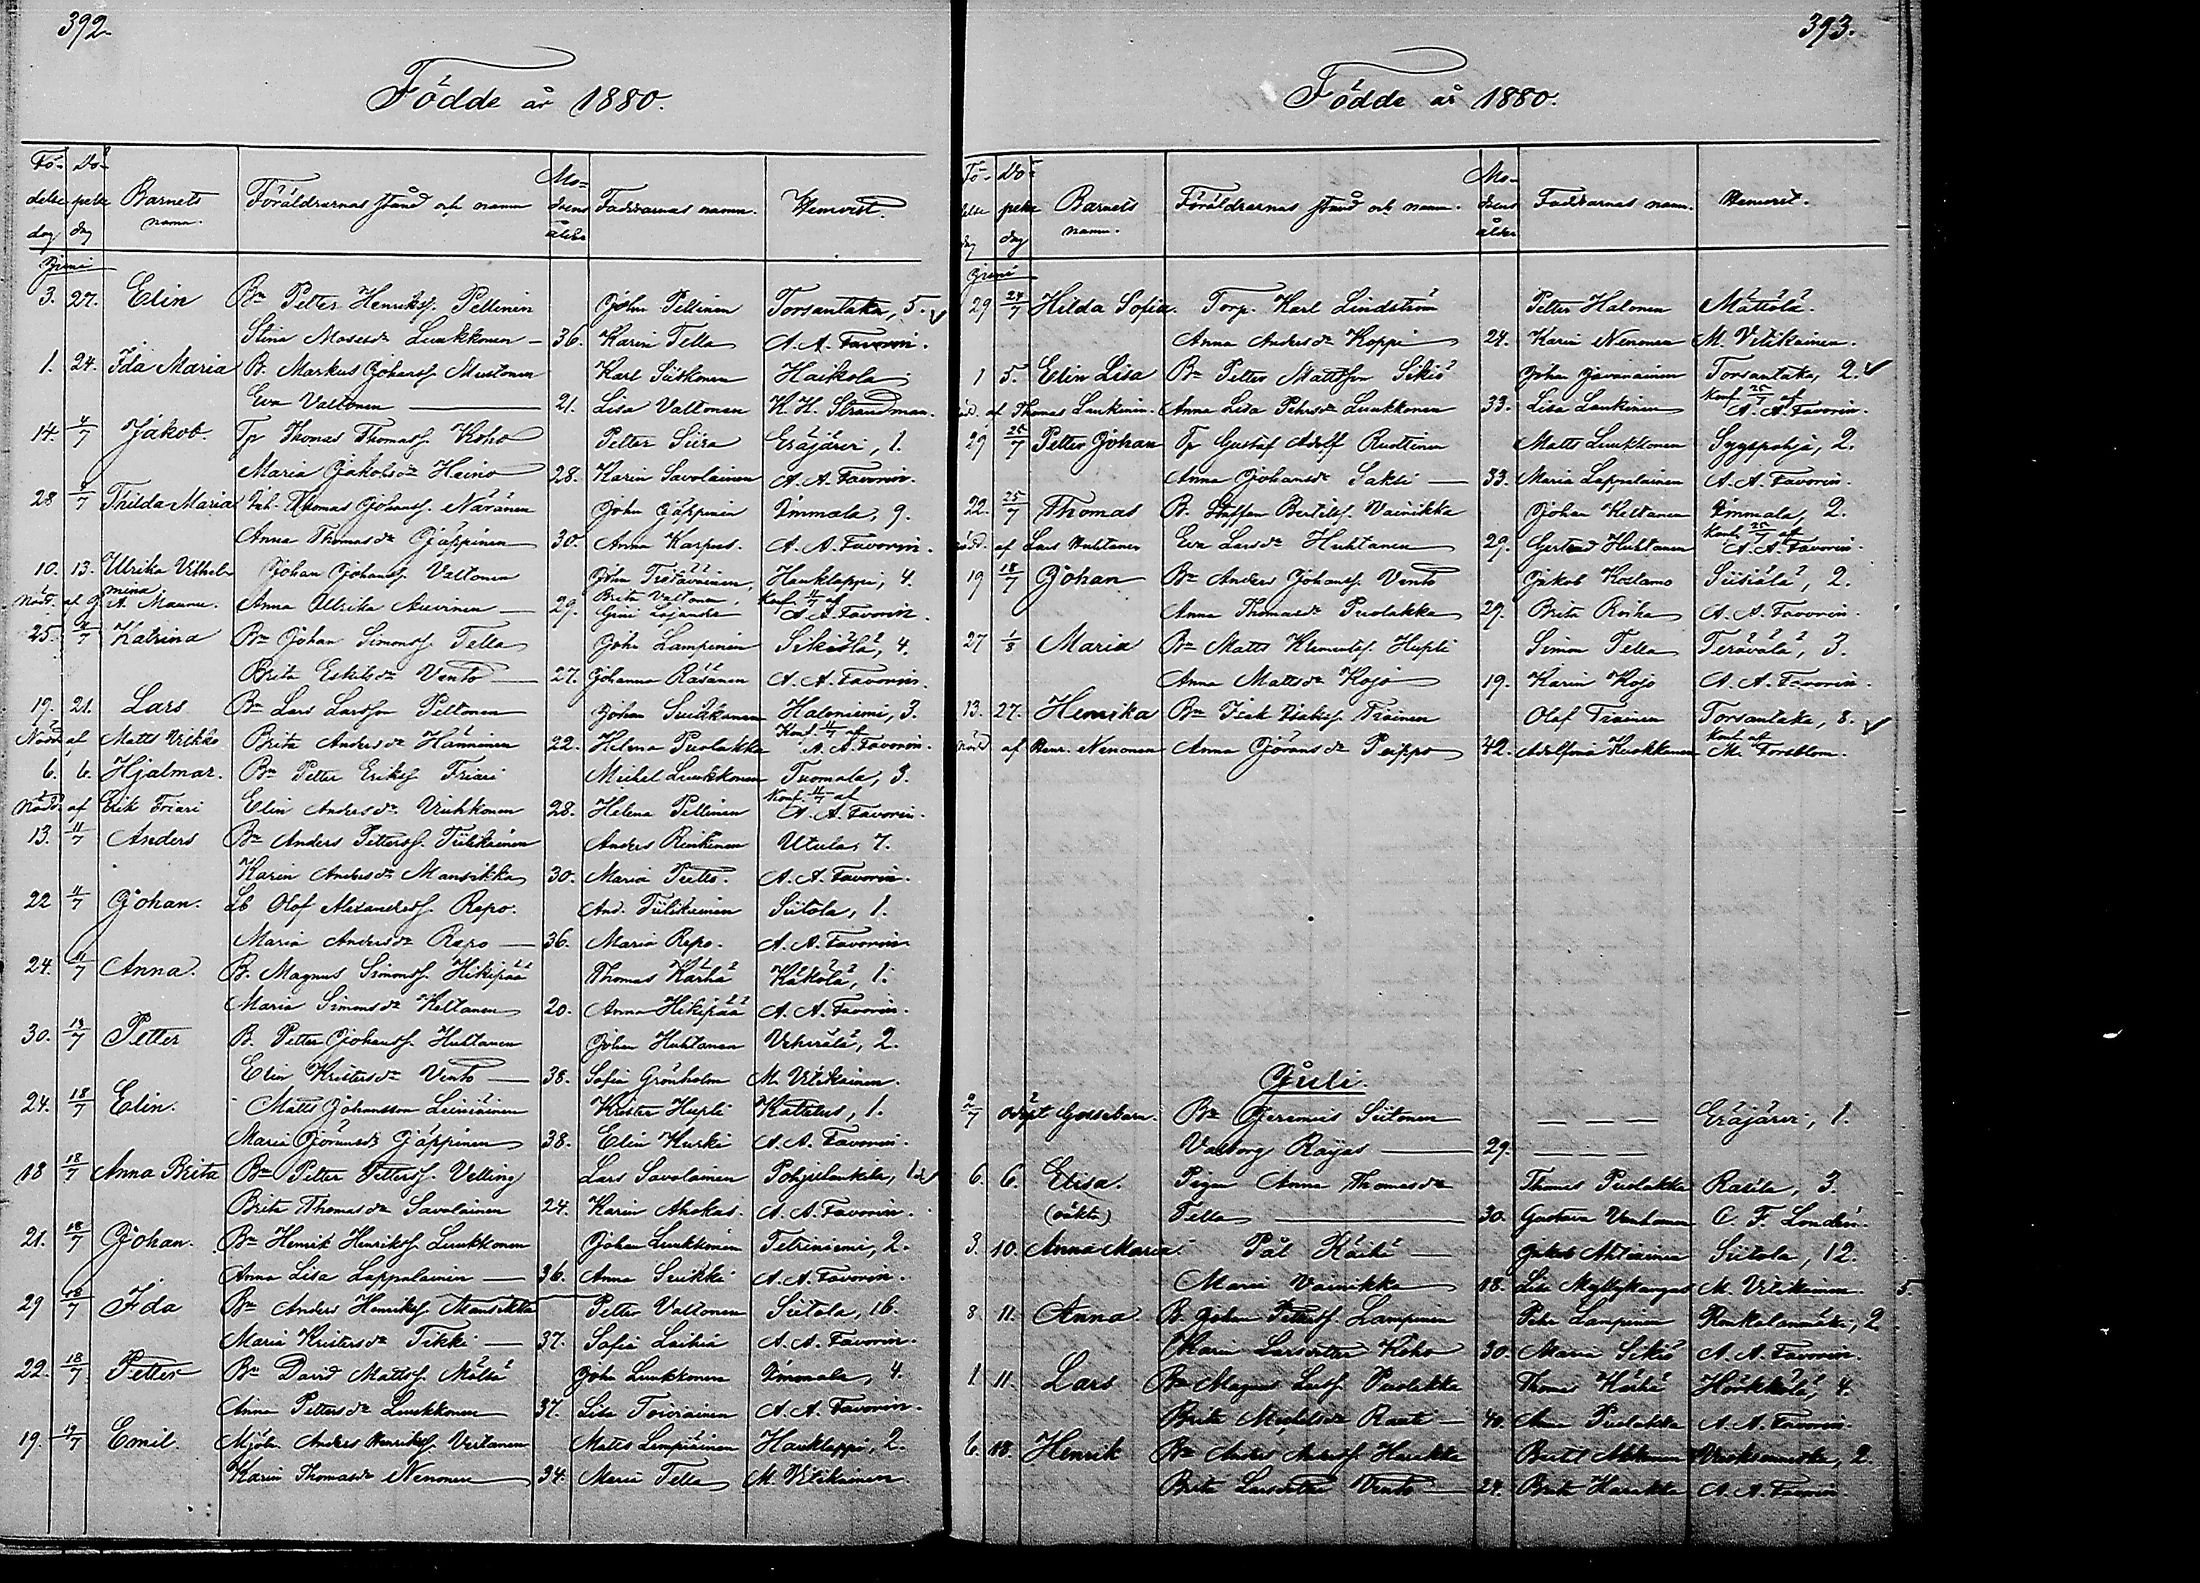 392
Födde år 1880.
Födelse dag Döpelse dag Barnets namn. Föräldrarnas stånd och namn Modrens ålder Faddrarnas namn. Hemvist.
Juni
3. 27. Elin Bn Petter Henrikss. Pellinen John Pellinen Torsantaka, 5.
Stina Mosesdr Luukkonen 36. Karin Tella A. A. Favorin.
1. 24. Ida Maria B. Markus Johanss. Mustonen Karl Siitkonen Haikola
Eva Valtonen 21. Lisa Valtonen K. H. Strandman.
14. 4/7 Jakob. Tp Thomas Thomass. Koho Petter Siira Eräjärvi, 1.
Maria Jakobsdr Heino 28. Karin Savolainen A. A. Favorin.
28 4/7 Thilda Maria Inh. Thomas Johanss. Näränen John Jäppinen Immala, 9.
Anna Thomasdr Jäppinen 30. Anna Karpus. A. A. Favorin.
10. 13. Ulrika Vilhelmina Johan Johanss. Valtonen John Hauklappi, 4.
Nöd. af A. Maunu. Anna Ullrika 29. Brita Valtonen, Konf. 4/7 af A. A. Favorin.
25. 4/7 Katrina Bn Johan Simonss. Tella John Lampinen Sikiölä, 4.
Brita Eskilsdr Vento 27. Johanna Räsänen A. A. Favorin.
19. 21. Lars Bn Lars Larsson Peltonen Johan Suikkanen Haloniemi, 3.
Nöd. af Matts Vilkko Brita Andersdr Hänninen 22. Helena Puolakka Konf. 4/7 af A. A. Favorin.
6. 6. Hjalmar. Bn Petter Erikss. Friari Michel Luukkonen Tuomala, 3.
Nöd. af Erik Friari Elin Andersdr Vauhkonen 28. Helena Pellinen Konf. 11/7 af A. A. Favorin.
13. 11/7 Anders Bn Anders Petterss. Tiilikainen Anders Rinkinen Utula, 7.
Karin Andersdr Mansikka 30. Maria A. A. Favorin.
22 11/7 Johan. Lb Olof Alexanderss. Repo. And. Tiilikainen Siitola, 1.
Maria Andersdr Repo 36. Maria Repo. A. A. Favorin
24. 11/7 Anna. B. Magnus Simonss. Hikipää Thomas Kärhä Käkölä, 1.
Maria Simonsdr Keltanen 20. Anna Hikipää A. A. Favorin.
30. 13/7 Petter B. Petter Johanss. Huhtanen Johan Huhtanen 2.
Elin Kristersdr Vento 38. Sofia Grönholm M. Vitikainen.
24. 18/7 Elin. Matts Johansson Leiniäinen Krister Hupli Kattelus, 1.
Maria Göransdr Jäppinen 38. Elin Kurki A. A. Favorin.
18 18/7 Anna Brita Bn Petter Petterss. Velling Lars Savolainen Pohjalankila, 1
Brita Thomasdr Savolainen 24. Karin Ahokas. A. A. Favorin.
21. 18/7 Johan. Bn Henrik Henrikss. Luukkonen Johan Luukkonen Tetriniemi, 2.
Anna Lisa Lappalainen 36. Anna Suikki A. A. Favorin.
29 18/7 Ida Bn Anders Henrikss. Mansikka Petter Valtonen Siitola, 16.
Maria Kristersdr Tikki 37. Sofia Laihia A. A. Favorin.
22. 18/7 Petter Bn David Mattss. Mälsä John Luukkonen Immala, 4.
Anna Pettersdr Luukkonen 37. Lisa Toivainen A. A. Favorin.
19. Emil. Mjöln. Anders Henrikss. Vertanen Matts Lempiäinen Hauklappi, 2.
Karin Thomasdr Nenonen 34. Maria Tella M. Vitikainen
393.
Födde år 1880.
Födelse dag Döpelse dag Barnets namn. Föräldrarnas stånd och namn. Modrens ålder Faddrarnas namn. Hemvist.
Juni
29 24/7 Hilda Sofia. Torp. Karl Lindström Petter Halonen Mättölä.
Anna Andersdr Hoppi 24. Karin Nenonen M. Vitikainen.
1 5. Elin Lisa Bn Petter Mattsson Sikiö Johan Javanainen Torsantaka, 2.
Nöd. af Thomas Laukinen. Anna Lisa Pehrsdr Luukkonen 33. Lisa Laukinen Konf. 25/7 af A. A. Favorin.
29 25/7 Petter Johan Tp Gustaf Adolf Ruotinen Matts Luukkonen Syyspohja, 2.
Anna Johansdr Sakki 33. Maria Lappalainen A. A. Favorin.
22. 25/7 Thomas B. Staffan Bertilss. Vainikka Johan Keltanen Immala, 2.
Nöd. af Lars Huhtanen Eva Larsdr Huhtanen 29. Gertrud Huhtanen Konf. 25/7 af A. A. Favorin.
19 18/7 Johan Bn Anders Johanss. Vento Jakob Koslamo Siisiälä, 2.
Anna Thomasdr Puolakka 29. Brita Roiha A. A. Favorin.
27 1/8 Maria Bn Matts Klementss. Hupli Simon Tella Terävälä, 3.
Anna Mattsdr Kojo 19. Karin Kojo A. A. Favorin.
13. 27. Henrika Bn Isak Isakss. Träinen Olof Träinen Torsantaka, 8.
Nöd. af Henr. Nenonen Anna Göransdr Peippo 42. Adolfina Kuokkanen Konf. af M. Forsblom.
Juli.
2/7 odöpt Gossebarn. Bn Jeremias Siitonen — — — Eräjärvi, 1.
Valborg Raijas 29. — — —
6. 6. Elisa. Pigan Anna Thomasdr Thomas Puolakka Rasila, 3.
(oäkta) Tella 30. Gustava Vanhanen C. F. Londén.
3. 10. Anna Maria. Pål Käihä Jakob Ahtiainen Siitola, 12.
Maria Vainikka 18. Lisa Myllykangas M. Vitikainen. 5.
8 11. Anna. B. Johan Petterss. Lampinen Petter Lampinen Rinkalanmäki, 2.
Karin Larsdotter Koho 30. Maria Sikiö A. A. Favorin.
1 11. Lars Bn Magnus Larss. Puolakka Thomas Kärhä Hörkkölä, 4.
Brita Michelsdr Rauti 40. Anna Puolakka A. A. Favorin.
6. 18. Henrik Bn Anders Anderss. Harakka Bertil Vuoksenniska, 2.
Brita Larsdotter Vento 24. Brita Harakka A. A. Favorin